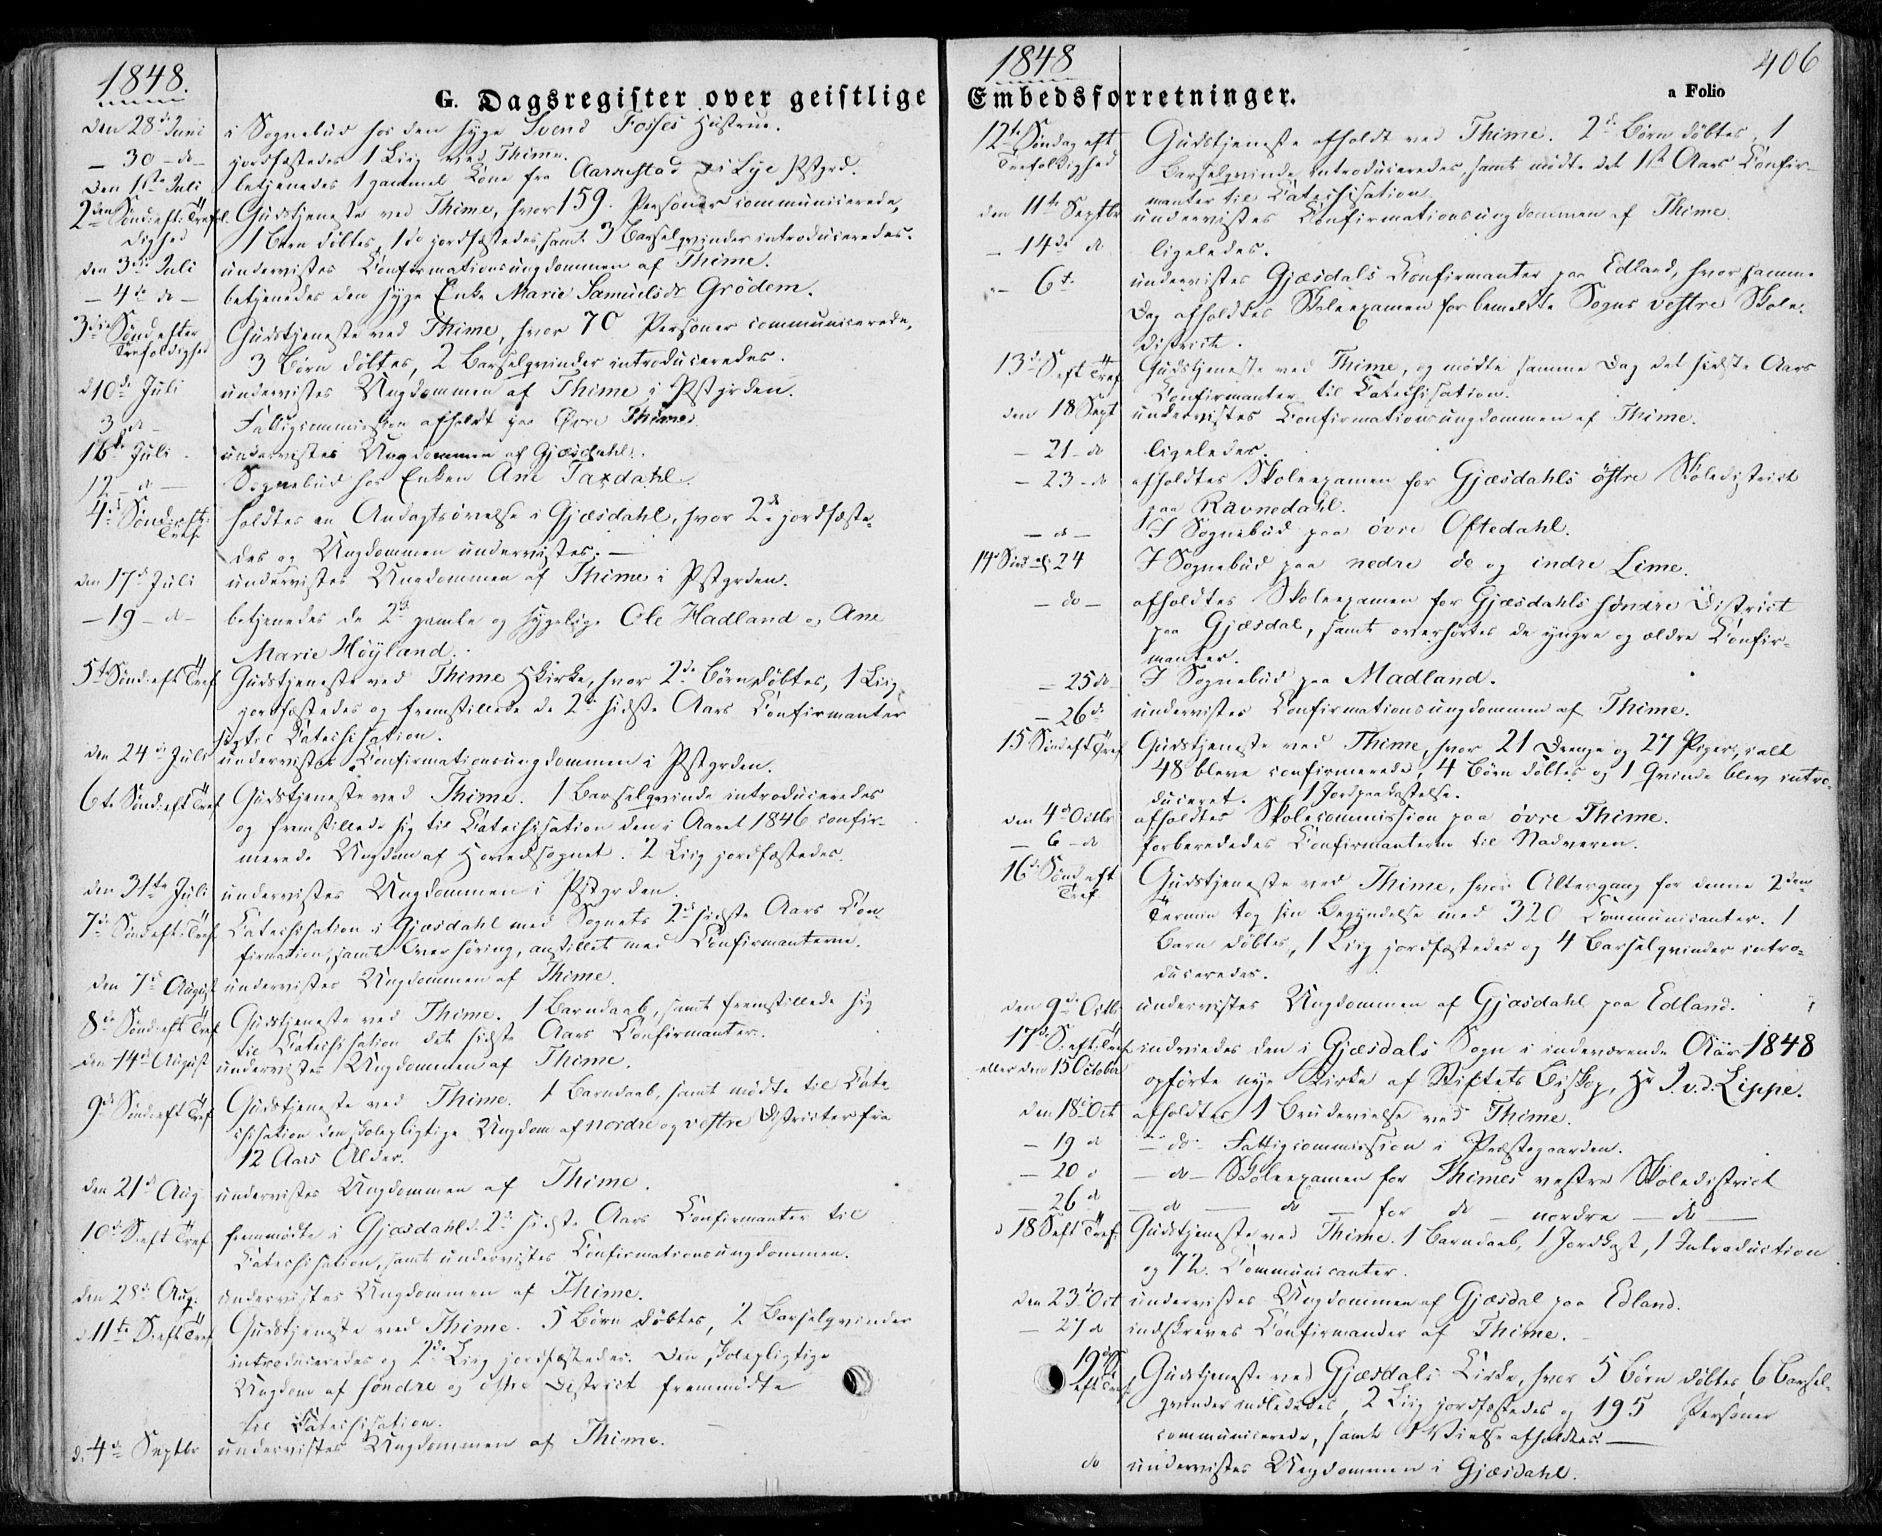 1848.
G. Dagsregister over geistlige
den 28de Juni i Sognebud hos den syge Svend Fosses Hustrue.
— 30 – do – jordfæstedes 1 Liig ved Thime.
den 1ste Juli betjenedes 1 gammel Kone fra Aarrestad i Lye Pstgrd.
2den Sønd: eft: Trefol- Gudstjeneste ved Thime, hvor 159. Personer communicerede,
dighed 1 Barn døbtes, 1 do jordfæstedes, samt 3 Barselqvinder introduceredes.
den 3die Juli undervistes Confirmationsungdommen af Thime.
— 4de do — betjenedes den syge Enke Marie Samuelsdr Grödem.
3die Sønd: efter Gudstjeneste ved Thime, hvor 70 Personer communicerede,
Trefoldighed 3 Børn døbtes, 2 Barselqvinder introduceredes.
d 10de Juli undervistes Ungdommen af Thime i Pstgrden.
3 do – Fattigcommission afholdt paa Øvre Thime.
16de Juli – undervistes Ungdommen af Gjæsdahl.
12 – d – Sognebud hos Enken Ane Taxdahl.
4de Sønd: eft: holdtes en Andagtsøvelse i Gjæsdahl, hvor 2de jordfæste-
Tref: des og Ungdommen undervistes. —
den 17de Juli undervistes Ungdommen af Thime i Pstgrden.
— 19 – d – betjenedes de 2de gamle og sygelige Ole Hadland og Ane
Marie Höyland.
5te Sønd: eft Tref Gudstjeneste ved Thime Kirke, hvor 2de Børn døbtes, 1 Liig
jordfæstedes og fremstillede de 2de sidste Aars Confirmanter
sig til Catechisation.
den 24de Juli undervistes Confirmationsungdommen i Pstgrden.
6te Sønd: eft Tref Gudstjeneste ved Thime. 1 Barselqvinde introduceredes
og fremstillede sig til Catechisation den i Aaret 1846 confir-
merede Ungdom af Hovedsognet. 2 Liig jordfæstedes.
den 31te Juli undervistes Ungdommen i Pstgrden.
7de Sønd: eft: Tref Catechisation i Gjæsdahl med Sognets 2de sidste Aars Con-
firmation, samt Overhøring, anstillet med Confirmanterne.
den 7de August undervistes Ungdommen af Thime.
8de Sønd: eft Tref Gudstjeneste ved Thime. 1 Barndaab, samt fremstillede sig
til Catechisation det sidste Aars Confirmanter.
den 14de August undervistes Ungdommen af Thime.
9de Sønd: eft Tref Gudstjeneste ved Thime. 1 Barndaab, samt mødte til Cate-
chisation den skolepligtige Ungdom af nordre og vestre Districter fra
12 Aars Alder.
den 21de Aug undervistes Ungdommen af Thime.
10de S: eft Tref fremmødte i Gjæsdahl de 2de sidste Aars Confirmanter til
Catechisation, samt undervistes Confirmationsungdommen.
den 28de Aug: undervistes Ungdommen af Thime.
d 11te S: eft Tref Gudstjeneste ved Thime. 5 Børn døbtes, 2 Barselqvinder
introduceredes og 2de Liig jordfæstedes. Den skolepligtige
Ungdom af søndre og østre District fremmødte
til Catechisation.
d. 4de Septbr undervistes Ungdommen af Thime.
1848
406
Embedsforretninger.
a Folio
12te Søndag eft Gudstjeneste afholdt ved Thime. 2de Børn døbtes, 1
Trefoldighed Barselqvinde introduceredes, samt mødte det 1ste Aars Confir-
manter til Catechisation.
den 11te Septbr undervistes Confirmationsungdommen af Thime.
— 14de do ligeledes.
— 6te undervistes Gjæsdals Confirmanter paa Edland, hvor samme
Dag afholdtes Skoleexamen for bemeldte Sogns vestre Skole-
district.
13de S eft Tref Gudstjeneste ved Thime, og mødte samme Dag det sidste Aars
Confirmanter til Catechisation.
den 18 Sept undervistes Confirmationsungdommen af Thime.
— 21 – do ligeledes.
— 23 – do afholdtes Skoleexamen for Gjæsdahls østre Skoledistrict
paa Ravnedahl.
— d – I Sognebud paa øvre Oftedahl.
14de Sønd – 24 I Sognebud paa nedre do og indre Lime.
— do – afholdtes Skoleexamen for Gjæsdahls søndre District
paa Gjæsdal, samt overhørtes de yngre og ældre Confir-
manter.
— 25 do – I Sognebud paa Madland.
— 26de undervistes Confirmationsungdommen af Thime.
15 Sønd eft Tref Gudstjeneste ved Thime, hvor 21 Drenge og 27 Piger, i alt
48 bleve confirmerede, 4 Børn døbtes og 1 Qvinde blev intro-
duceret. 1 Jordpaakastelse.
den 4de Octbr afholdtes Skolecommission paa øvre Thime.
— 6 – do forberededes Confirmanterne til Nadveren.
16de Sønd eft Gudstjeneste ved Thime, hvor Altergang for denne 2den
Tref Termin tog sin Begyndelse med 320 Communicanter. 1
Barn døbtes, 1 Liig jordfæstedes og 4 Barselqvinder intro-
duceredes.
den 9de Octbr undervistes Ungdommen af Gjæsdahl paa Edland.
17de S: eft: Tref indviedes den i Gjæsdals Sogn i indeværende Aar 1848
eller den 15 October opførte nye Kirke af Stiftets Biskop, Hr J. v. d. Lippe.
den 18de Oct afholdtes 1 Brudevielse ved Thime.
— 19 d — do – Fattigcommission i Præstegaarden.
— 20 d — do – Skoleexamen for Thimes vestre Skoledistrict
— 26 d — d — do — for do – nordre – do —
d 18 S eft Tref: Gudstjeneste ved Thime. 1 Barndaab, 1 Jordkast, 1 Introduction
og 72. Communicanter.
den 23de Oct undervistes Ungdommen af Gjæsdal paa Edland.
— 27 d indskreves Confirmander af Thime. –
19de S Gudstjeneste ved Gjæsdals Kirke, hvor 5 Børn døbtes 6 Barsel-
eft Tref qvinder indlededes, 2 Liig jordfæstedes og 195 Personer
communicerede, samt 1 Vielse afholdtes. —
do undervistes Ungdommen i Gjæsdahl.